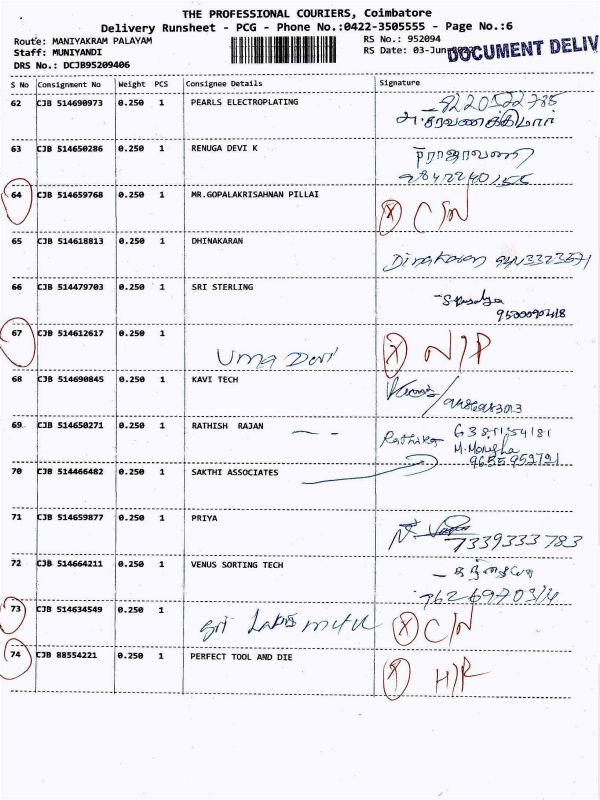 THE PROFESSIONAL COURIERS, Coimbatore
Delivery Runsheet - PCG - Phone No.:0422-3505555 - Page No.:6
Route: MANIYAKRAM PALAYAM
RS No.: 952094
Staff: MUNIYANDI
RS Date: 03-Jun
DOCUMENT DELIV
DRS No.: DCJB95209406
S No Consignment No Weight PCS Consignee Details Signature
62 CJB 514690973 0.250 1 PEARLS ELECTROPLATING
63 CJB 514650286 0.250 1 RENUGA DEVI K
64 CJB 514659768 0.250 1 MR.GOPALAKRISAHNAN PILLAI X C/N
65 CJB 514618813 0.250 1 DHINAKARAN Dinakaran
66 CJB 514479703 0.250 1 SRI STERLING
67 CJB 514612617 0.250 1 Uma Devi X N/P
68 CJB 514690845 0.250 1 KAVI TECH
69 CJB 514650271 0.250 1 RATHISH RAJAN Rathika
70 CJB 514466482 0.250 1 SAKTHI ASSOCIATES
71 CJB 514659877 0.250 1 PRIYA 7339333783
72 CJB 514664211 0.250 1 VENUS SORTING TECH
73 CJB 514634549 0.250 1 Sri X C/N
74 CJB 88554221 0.250 1 PERFECT TOOL AND DIE X H/R